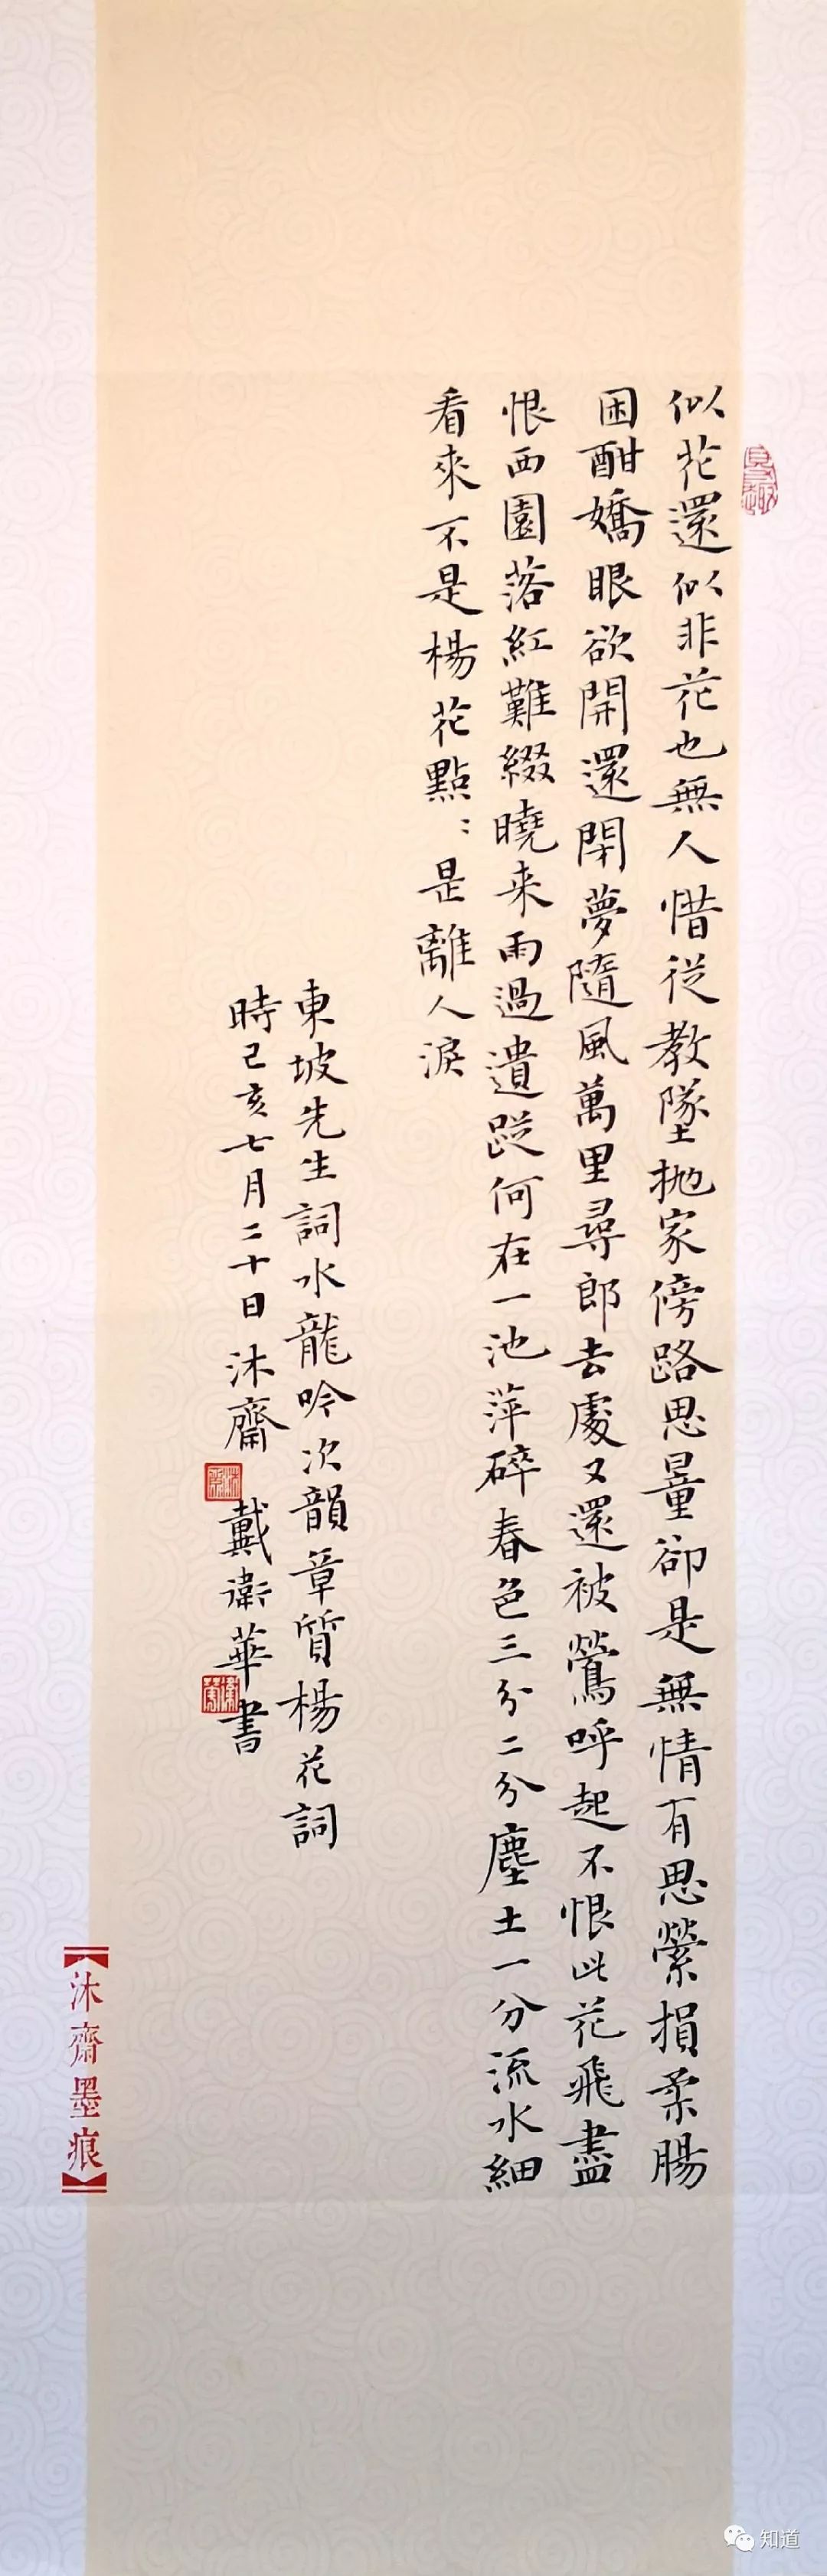 似花還似非花也無人惜從教墜抛家傍路思量卻是無情有思縈損柔腸
困酣嬌眼欲開還閉夢隨風萬里尋郎去處又還被鶯呼起不恨此花飛盡
恨西園落紅難綴曉来雨過遺蹤何在一池萍碎春色三分二分塵土一分流水細
看來不是楊花點：是離人淚
東坡先生詞水龍吟次韻章質楊花詞
時己亥七月二十日沐齋戴衛華書
【沐齋墨痕】
知道